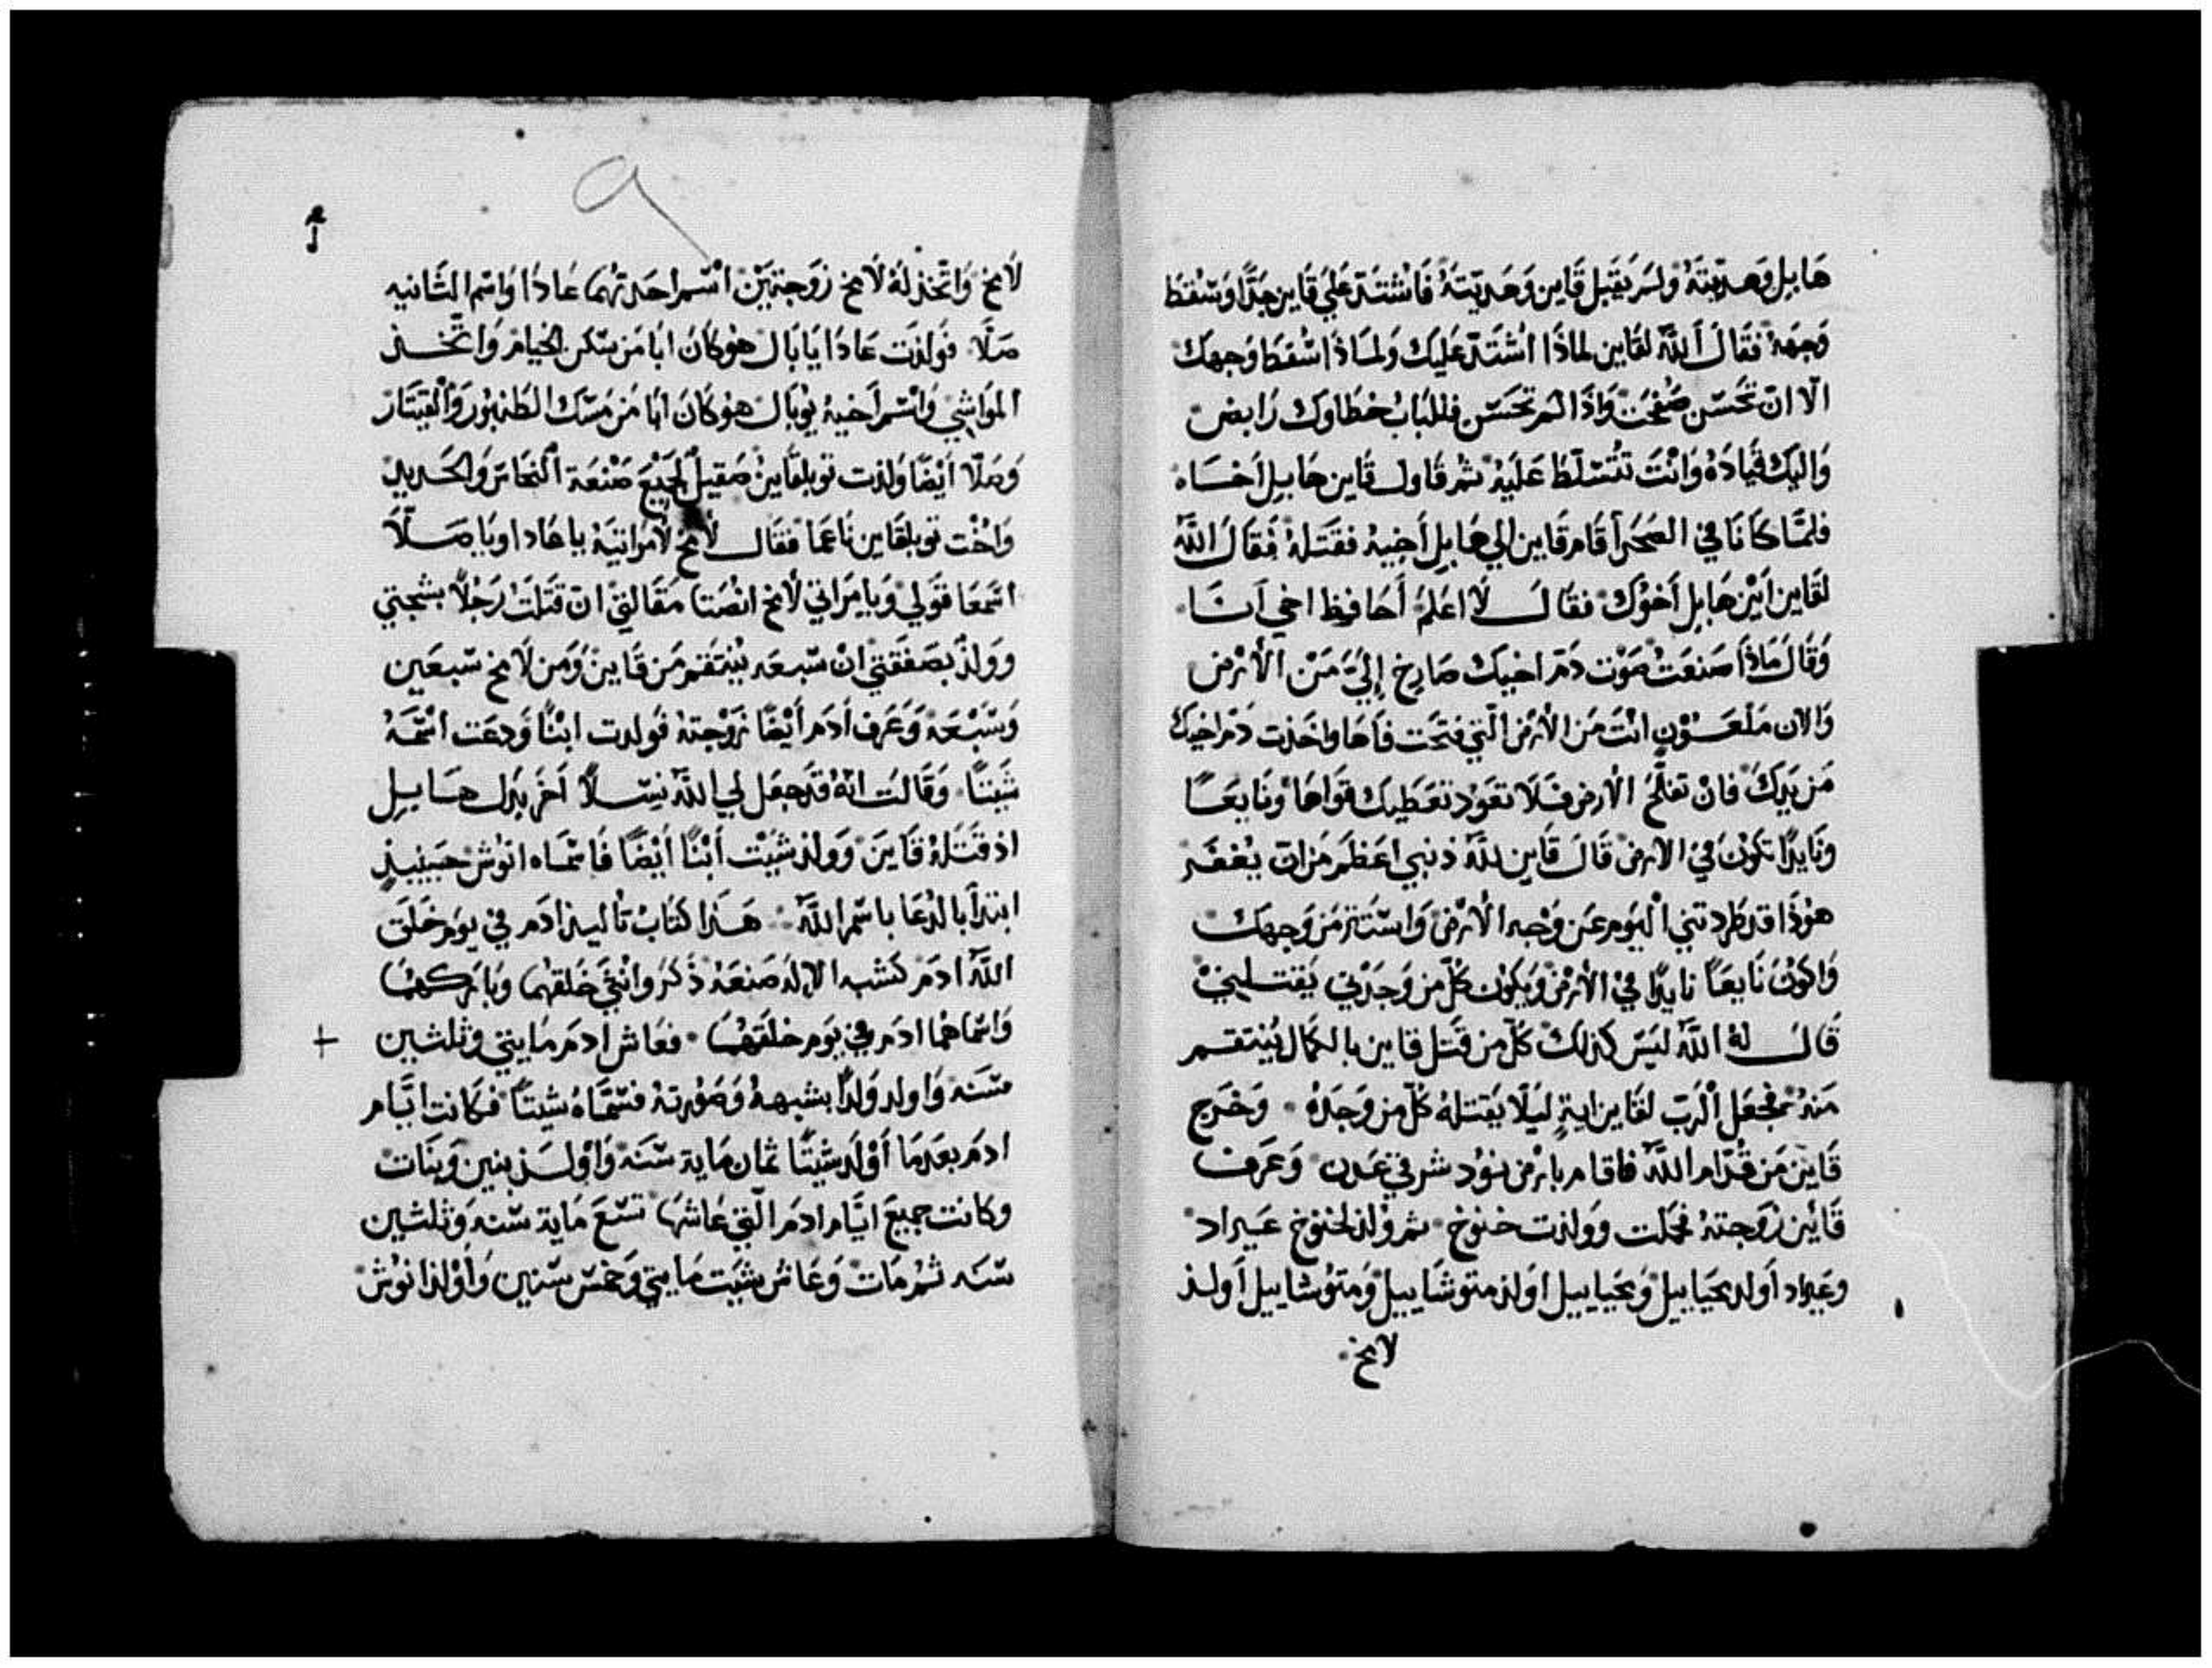 هَابِل وَهديّتَهُ وَلم يَقبَل قَاين وَهَديّتهُ فَاشتَدّ عَلي قَاين جدًّا وَسَقط
وَجهَهُ فقَال اَللّه لقَاين لماذَا اشتَدّ عَليك وَلماذَا سَقط وَجهك
الا ان تحسّن صفحت وَاذَا لم تحسّن فللبَاب خطاوك رَابض
وَاليك قيادهُ وَانتَ تتسلّط عَليهِ ثم قاول قاين هابيل اَخاه
فلمّا كانا في الصَحرا قَام قَاين الي هَابِل اَخيهِ فقَتلهُ فقَال اللّه
لقَاين اَيْن هَابِل اَخوُك فقال لا اعلمُ اَحَافظ اخي اَنا
وَقَال مَاذَا صَنعتْ صَوْت دَم اخيك صَارخ إليَّ مَن الاَرض
وَالان مَلعوُن انتَ مَن الاَرض الّتي فتحَت فاَها وَاخذت دَم اخيك
مَن يدِك فانْ تفلحُ الارض فَلا تعَوُد تعطيك قوَاها وَنَايعًا
وَنَايدًا تكوُن فيْ الارض قَال قَاين للّه ذنبي اعظم من ان يغفر
هوُذَا قد طَردتني اَليَوم عَن وَجه الاَرْض وَاستتر من وَجهك
وَاكوُن نَايعَاً نايدًا فيْ الاَرْض وَيكوُن كلّ من وَجدَني يَقتلنيْ
قَال لهُ اللّه ليسَ كذلك كلّ من قتل قاين بالكمال يُنتقم
مَنهُ فجعَل اَلرَبّ لقَاين ايةٍ ليَلا يَقتلهُ كلّ من وَجَدهُ وَخَرج
قَاين مَن قدّام اللّه فاقام بارض نوُد شرقي عَدن وَعَرف
قَاين زوَجتهُ فحَملت ووَلدت خنوُخ ثم وُلد لخنوخ عَيراد
وعَيراد اَولد محَيَاييل وَمحياييل اَولد متوشَاييل وَمتوُشاييل اَولد
لامخ
لَامخ وَاتّخذ لهُ لَامخ زوَجتيَن اسم احَدتهُما عَادَا وَاسم الثَانيه
صَلّا فوَلدَت عَادَا يَابَال هوُ كَان ابا مَن سَكن الخيام وَاتّخذ
المَواشِي وَاسم اَخيهِ يوُبَال هوُ كَان ابَا مَن مَسَك الطنبوُر وَالقيتَار
وَصَلّا اَيضًا وَلدت توبلقَاين صَقيل لجَميع صَنعَة اَلنحَاس وَالحَديد
وَاخْت توبلقَاين نَاعمَا فقَال لامخ لامرَاتيهِ ياعَادا وَيَا صَلّا
اسمَعَا قَولي وَيا مَراتي لَامخ انصتا مَقَالتيْ ان قتَلت رَجُلًا بشَجتي
ووَلدْ بصَفقتيْ انْ سَبعَه يُنتقم مَن قَاين وَمَن لَامخ سَبعَين
وَسَبعَهْ وَعَرف اَدَم اَيْضًا زوَجتهُ فوَلدت ابْنًا وَدعَت اسمهُ
شيتًا وَقَالت انّهُ قد جعَل لي اللّه نسلًا اَخر بَدل هَابيل
اذ قتَلهُ قَاينَ وَولد شيت اَبنًا أيْضًا فاَسمَاه انوُش حينيذٍ
ابتدا بالدُعَا باسم اللّه هَذا كتاب تواليد ادَم في يوَم خَلَق
اللّه ادَم كشبه الاِله صَنعَهُ ذَكرُ وَانثي خَلقهُما وبَاركهما
وَاسماهُما ادَم في يَوَم خلقَهُما فعَاش ادَم مَايتي وثلثين
سَنَه وَاولد وَلدًا بشبههُ وَصوُرتهُ فسَمّاهُ شيتاً فكانت ايّام
ادَم بعَدمَا اَوْلد شيتًا ثمان مَاية سَنَه وَاوْلد بنين وَبنَات
وكَانت جميعَ ايّام ادَم الّتي عَاشها تسَع مَاية سَنه وَثلثين
سَنه ثمّ مَات وَعَاش شيت مَايتي وَخمس سَنين وَاَوْلد انوُش